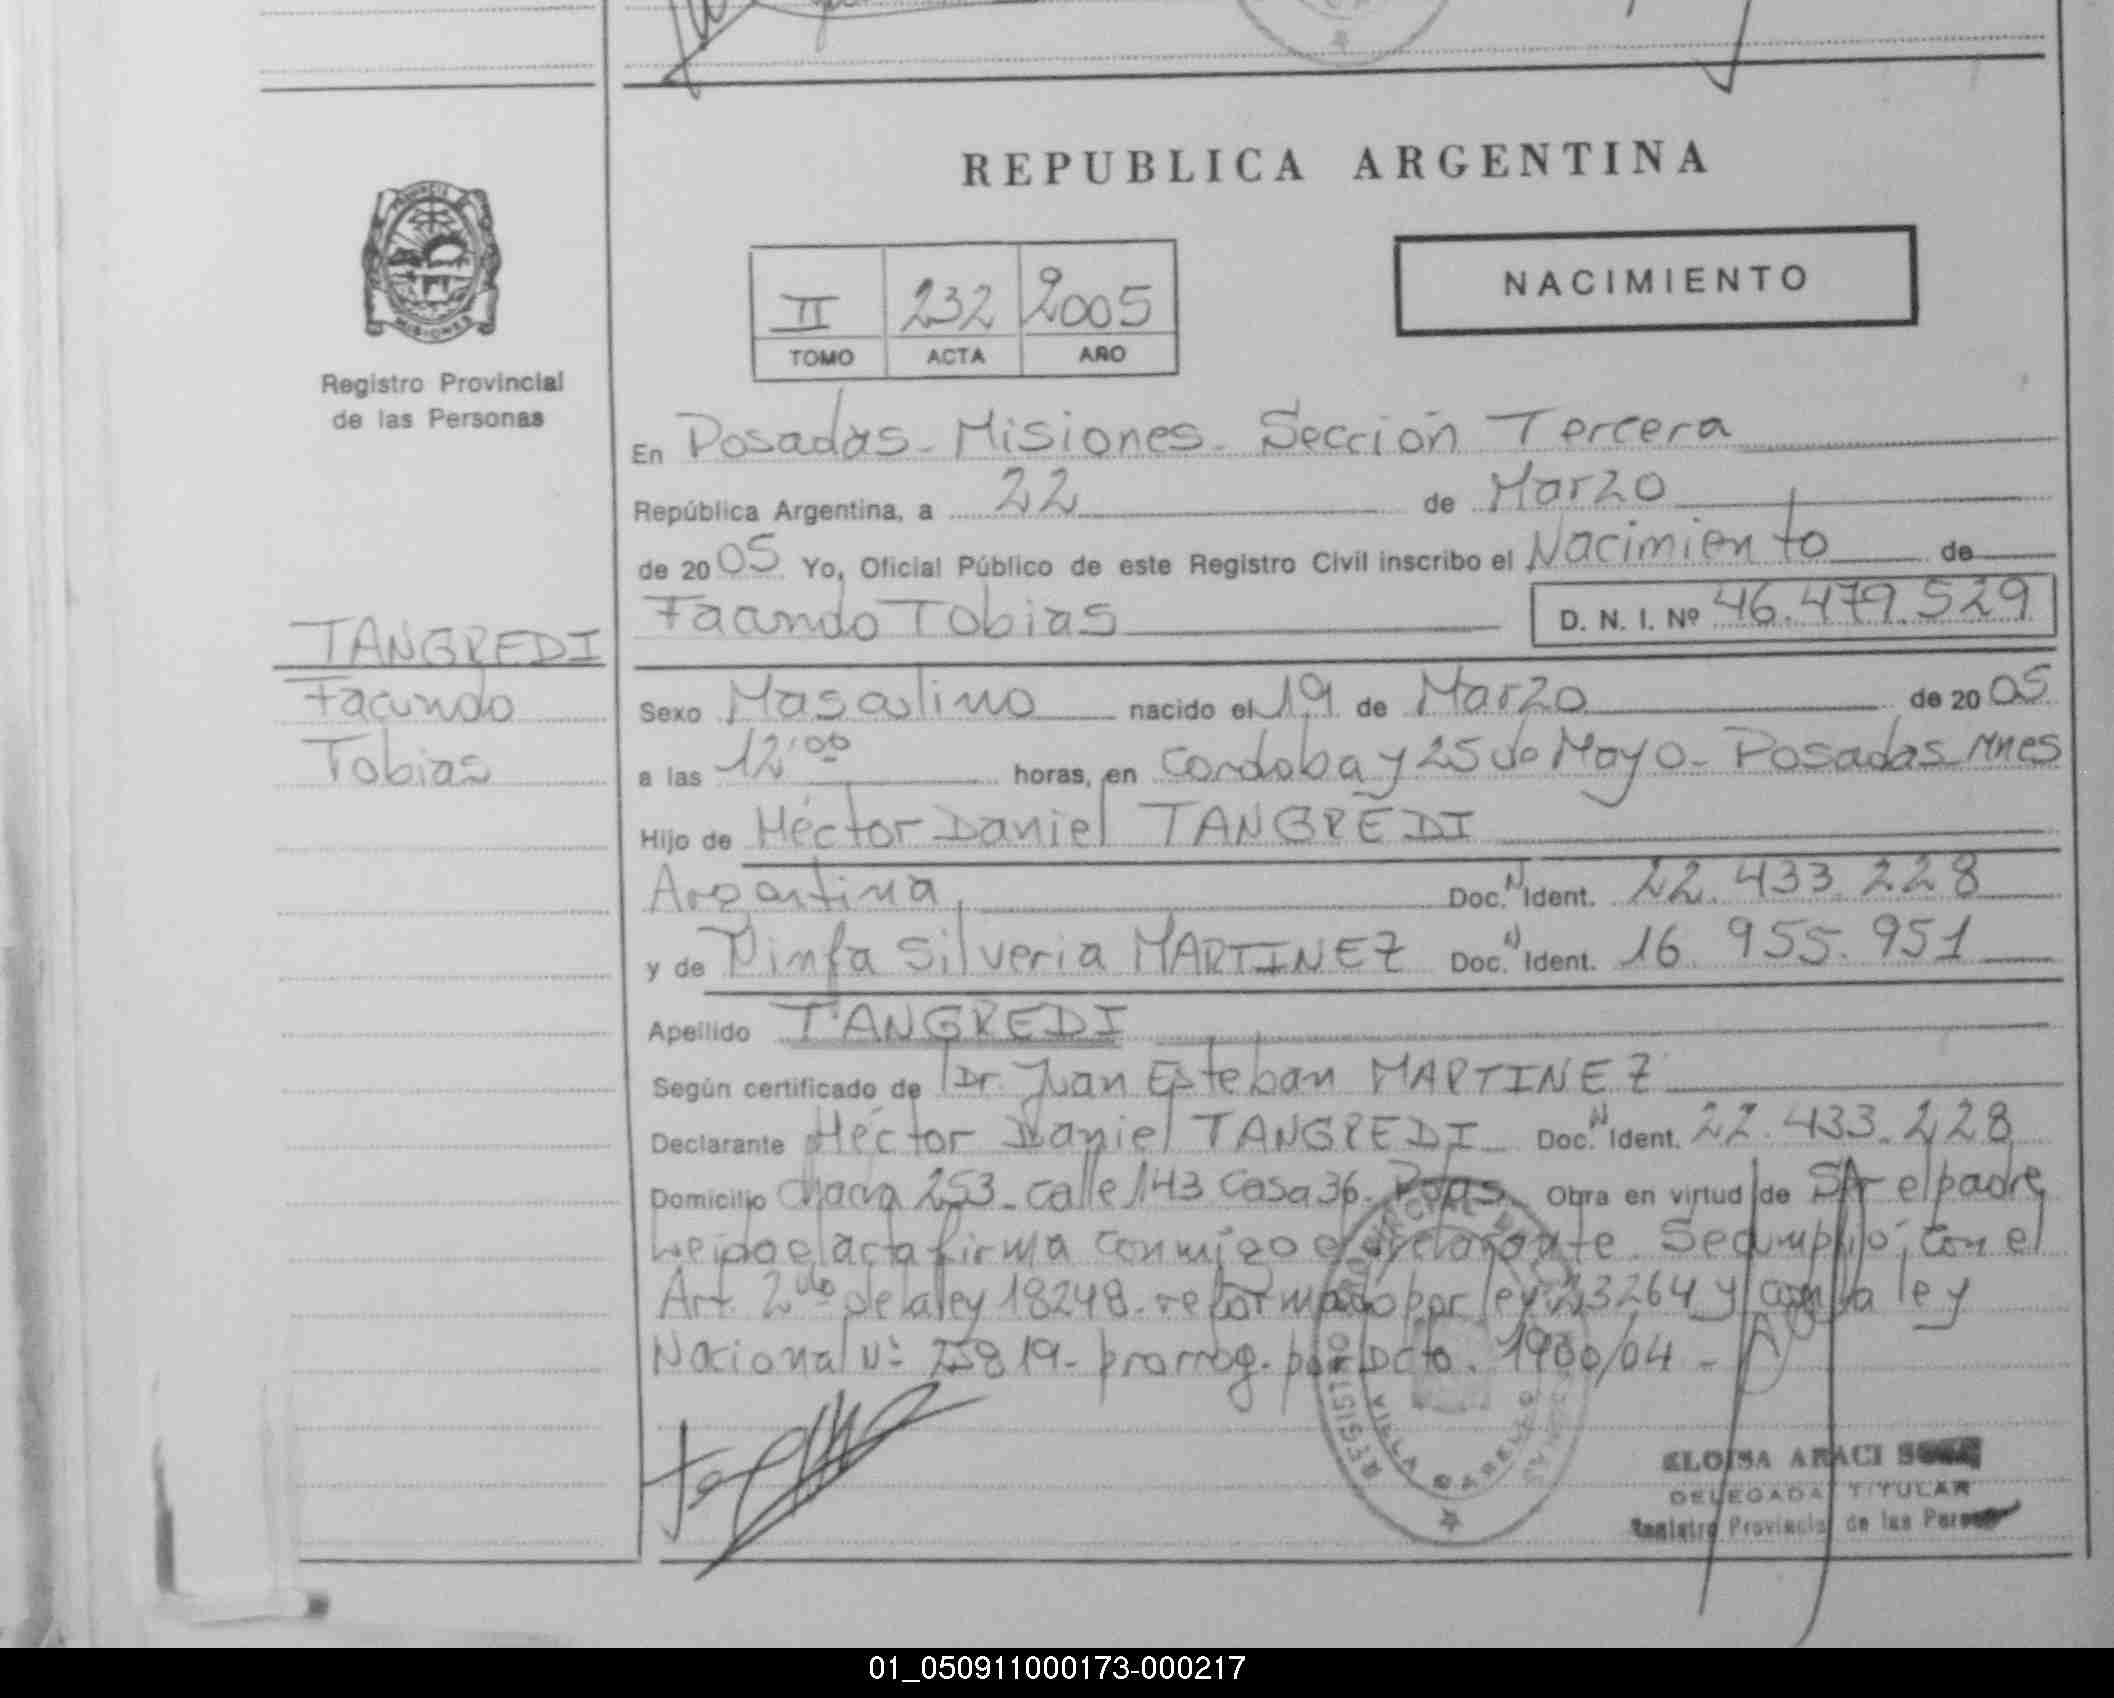 REPUBLICA ARGENTINA
PROVINCIA DE
MISIONES
Registro Provincial
de las Personas
NACIMIENTO
II 232 2005
TOMO ACTA AÑO
En Posadas - Misiones - Sección Tercera
República Argentina, a 22 de Marzo
de 2005 Yo, Oficial Público de este Registro Civil inscribo el Nacimiento de
Facundo Tobias D. N. I. Nº 46.479.529
TANGREDI
Facundo
Tobias
Sexo Masculino nacido el 19 de Marzo de 2005
a las 12:00 horas, en Cordoba y 25 de Mayo - Posadas Mnes
Hijo de Héctor Daniel TANGREDI
Argentina, Doc. N Ident. 22.433.228
y de Ninfa Silveria MARTINEZ Doc. N Ident. 16.955.951
Apellido TANGREDI
Según certificado de Dr. Juan Esteban MARTINEZ
Declarante Héctor Daniel TANGREDI Doc. N Ident. 22.433.228
Domicilio Chacra 253 - calle 143 Casa 36 - Pdas Obra en virtud de Ser el padre
Leida el acta firma conmigo el declarante. Se cumplió con el
Art. 2do de la ley 18248 - reformado por ley 23264 y con la ley
Nacional Nº 25819 - prorrog. por Dcto. 1900/04 -
REGISTRO PROVINCIAL DE LAS PERSONAS
VILLA CABELLO
ELOISA ARACI
DELEGADA TITULAR
Registro Provincial de las Personas
01_050911000173-000217